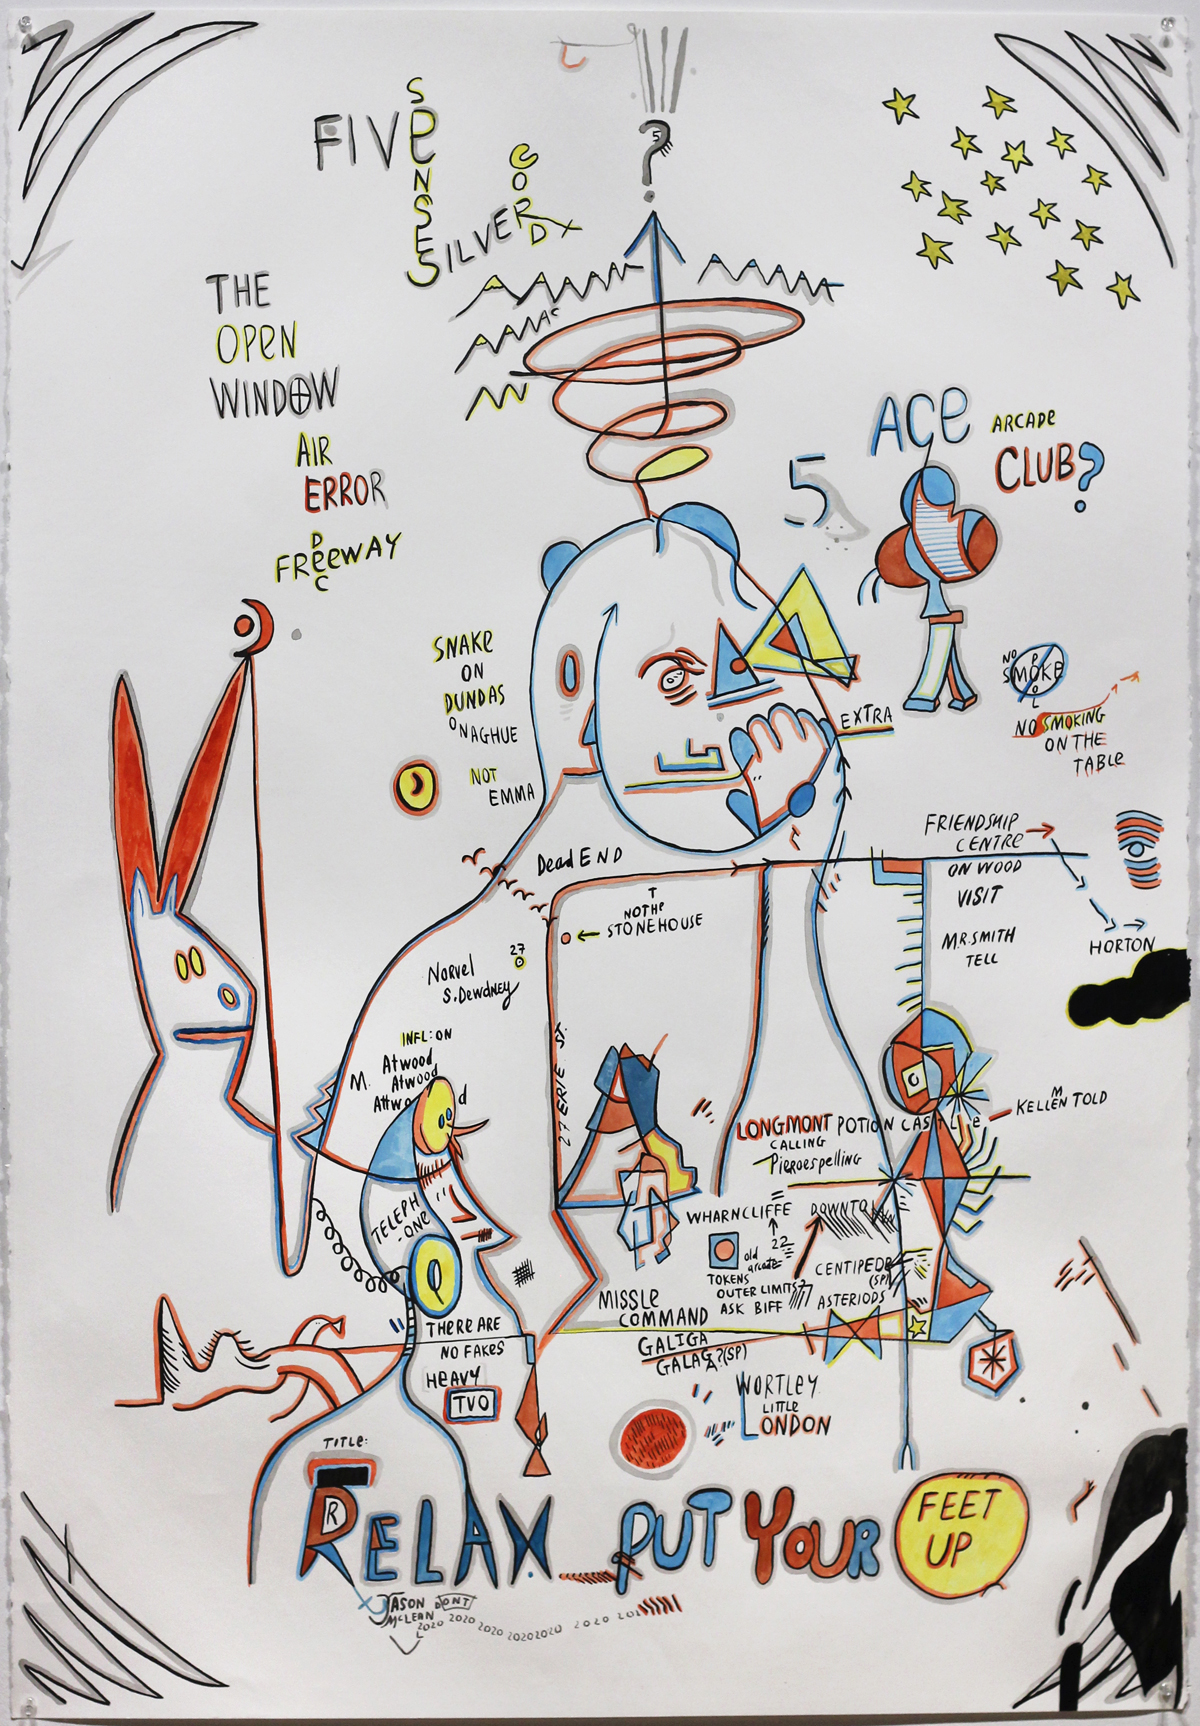 5
FIVE
SENSES
SILVER
CORD
THE
OPEN
WINDOW
AIR
ERROR
FREEWAY
DEC
5
ACE
ARCADE
CLUB?
SNAKE
ON
DUNDAS
ONAGHUE
NOT
EMMA
EXTRA
NO
SMOKE
POOL
NO SMOKING
ON THE
TABLE
Dead END
FRIENDSHIP
CENTRE
ON WOOD
VISIT
M.R. SMITH
TELL
HORTON
NOTHE
STONEHOUSE
27
NORVEL
S. DEWDNEY
INFL:ON
M. Atwood
Atwood
27 ERIE ST.
KELLEN TOLD
M
LONGMONT POTION CASTLE
CALLING
Pieroespelling
TELEPH
-ONE
WHARNCLIFFE
DOWNTO
22
old
arcade
TOKENS
OUTER LIMITS?
ASK BIFF
CENTIPEDE
(SP)
ASTERIODS
MISSLE
COMMAND
GALIGA
GALAGA?(SP)
THERE ARE
NO FAKES
HEAVY
TVO
WORTLEY
LITTLE
LONDON
TITLE:
R
RELAX PUT YOUR FEET
UP
JASON DONT
MCLEAN
2020 2020 2020 2020 2020 2020 2020